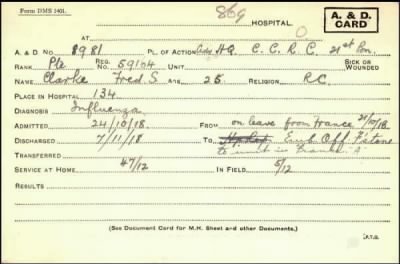 Form DMS 1401.
869
HOSPITAL.
A. & D. CARD
AT
A. & D. No. 8981 PL. OF ACTION H.Q. C.C.R.C. 21st Pon.
RANK Pte REG. No. 59104 UNIT SICK OR WOUNDED
NAME Clarke Fred S. AGE 25. RELIGION R.C.
PLACE IN HOSPITAL 134
DIAGNOSIS Influenza
ADMITTED 24/10/18. FROM on leave from France 24/10/18.
DISCHARGED 7/11/18 TO Emb. Off. F'stone
to unit in France "A"
TRANSFERRED
SERVICE AT HOME 47/12 IN FIELD 5/12
RESULTS
(See Document Card for M.H. Sheet and other Documents.)
[P.T.O.